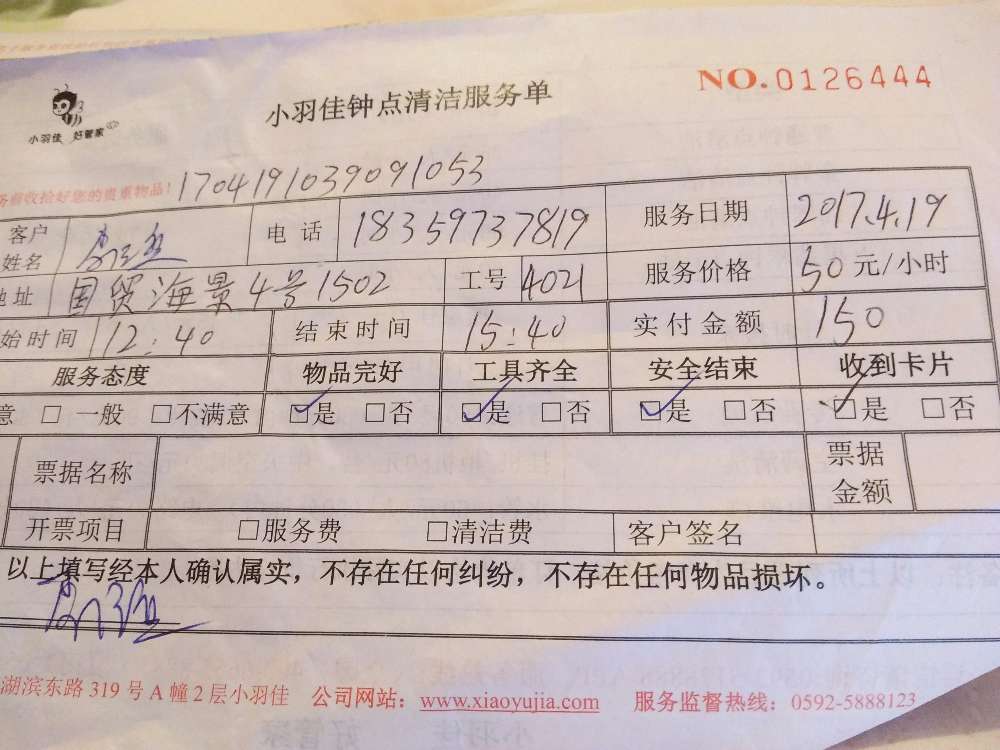 NO.0126444
小羽佳钟点清洁服务单
小羽佳 好管家
务必收拾好您的贵重物品! 1704191039091053
客户姓名 电话 18359737819 服务日期 2017.4.19
地址 国贸海景4号1502 工号 4021 服务价格 50元/小时
始时间 12:40 结束时间 15:40 实付金额 150
服务态度 物品完好 工具齐全 安全结束 收到卡片
意 □一般 □不满意 □是 □否 □是 □否 □是 □否 □是 □否
票据名称 票据金额
开票项目 □服务费 □清洁费 客户签名
以上填写经本人确认属实，不存在任何纠纷，不存在任何物品损坏。
湖滨东路319号A幢2层小羽佳 公司网站：www.xiaoyujia.com 服务监督热线：0592-5888123